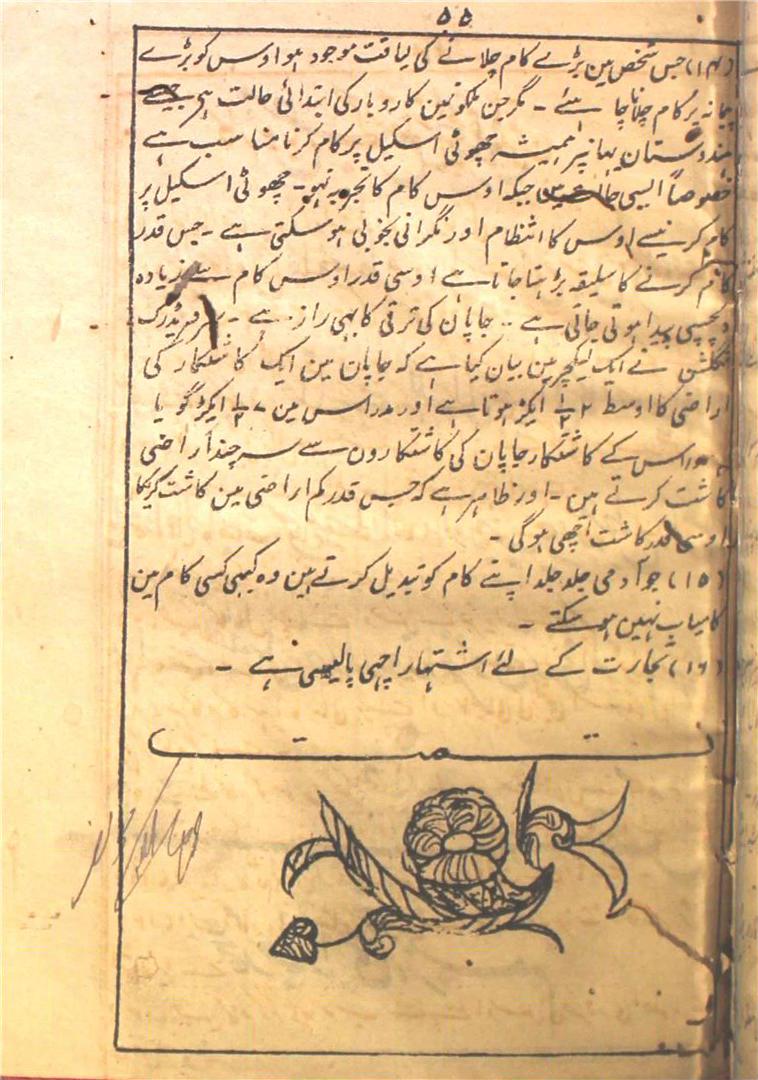 ۵۵
(۱۴) جس شخص مین بڑے کام چلانے کی لیاقت موجود ہو اوس کو بڑے
پیمانہ پر کام چلانا چاہئے ۔ مگر جن ملکونمین کاروبار کی ابتدائی حالت ہی جیسے
ہندوستان یہانپر ہمیشہ چھوٹی اسکیل پر کام کرنا مناسب ہے
خصوصاً ایسی حالت مین جبکہ اوس کام کا تجربہ نہو ۔ چھوٹی اسکیل پر
کام کرنیسے اوس کا انتظام اور نگرانی بخوبی ہو سکتی ہے ۔ جس قدر
کام کرنے کا سلیقہ بڑہتا جاتا ہے اوسی قدر اوس کام سے زیادہ
دلچسپی پیدا ہوتی جاتی ہے ۔ جاپان کی ترقی کا یہی راز ہے ۔ سر فریڈرک
نکلسن نے ایک لیکچر مین بیان کیا ہے کہ جاپان مین ایک کاشتکار کی
اراضی کا اوسط ۲ ۱/۲ ایکڑ ہوتا ہے اور مدراس مین ۷ ۱/۲ ایکڑ گویا
مدراس کے کاشتکار جاپان کی کاشتکارون سے سہ چند اراضی
کاشت کرتے ہین ۔ اور ظاہر ہے کہ جس قدر کم اراضی مین کاشت کریگا
اوسی قدر کاشت اچھی ہوگی ۔
(۱۵) جو آدمی جلد جلد اپنے کام کو تبدیل کرتے ہین وہ کبھی کسی کام مین
کامیاب نہین ہو سکتے ۔
(۱۶) تجارت کے لئے اشتہار اچھی پالیسی ہے ۔
تمت